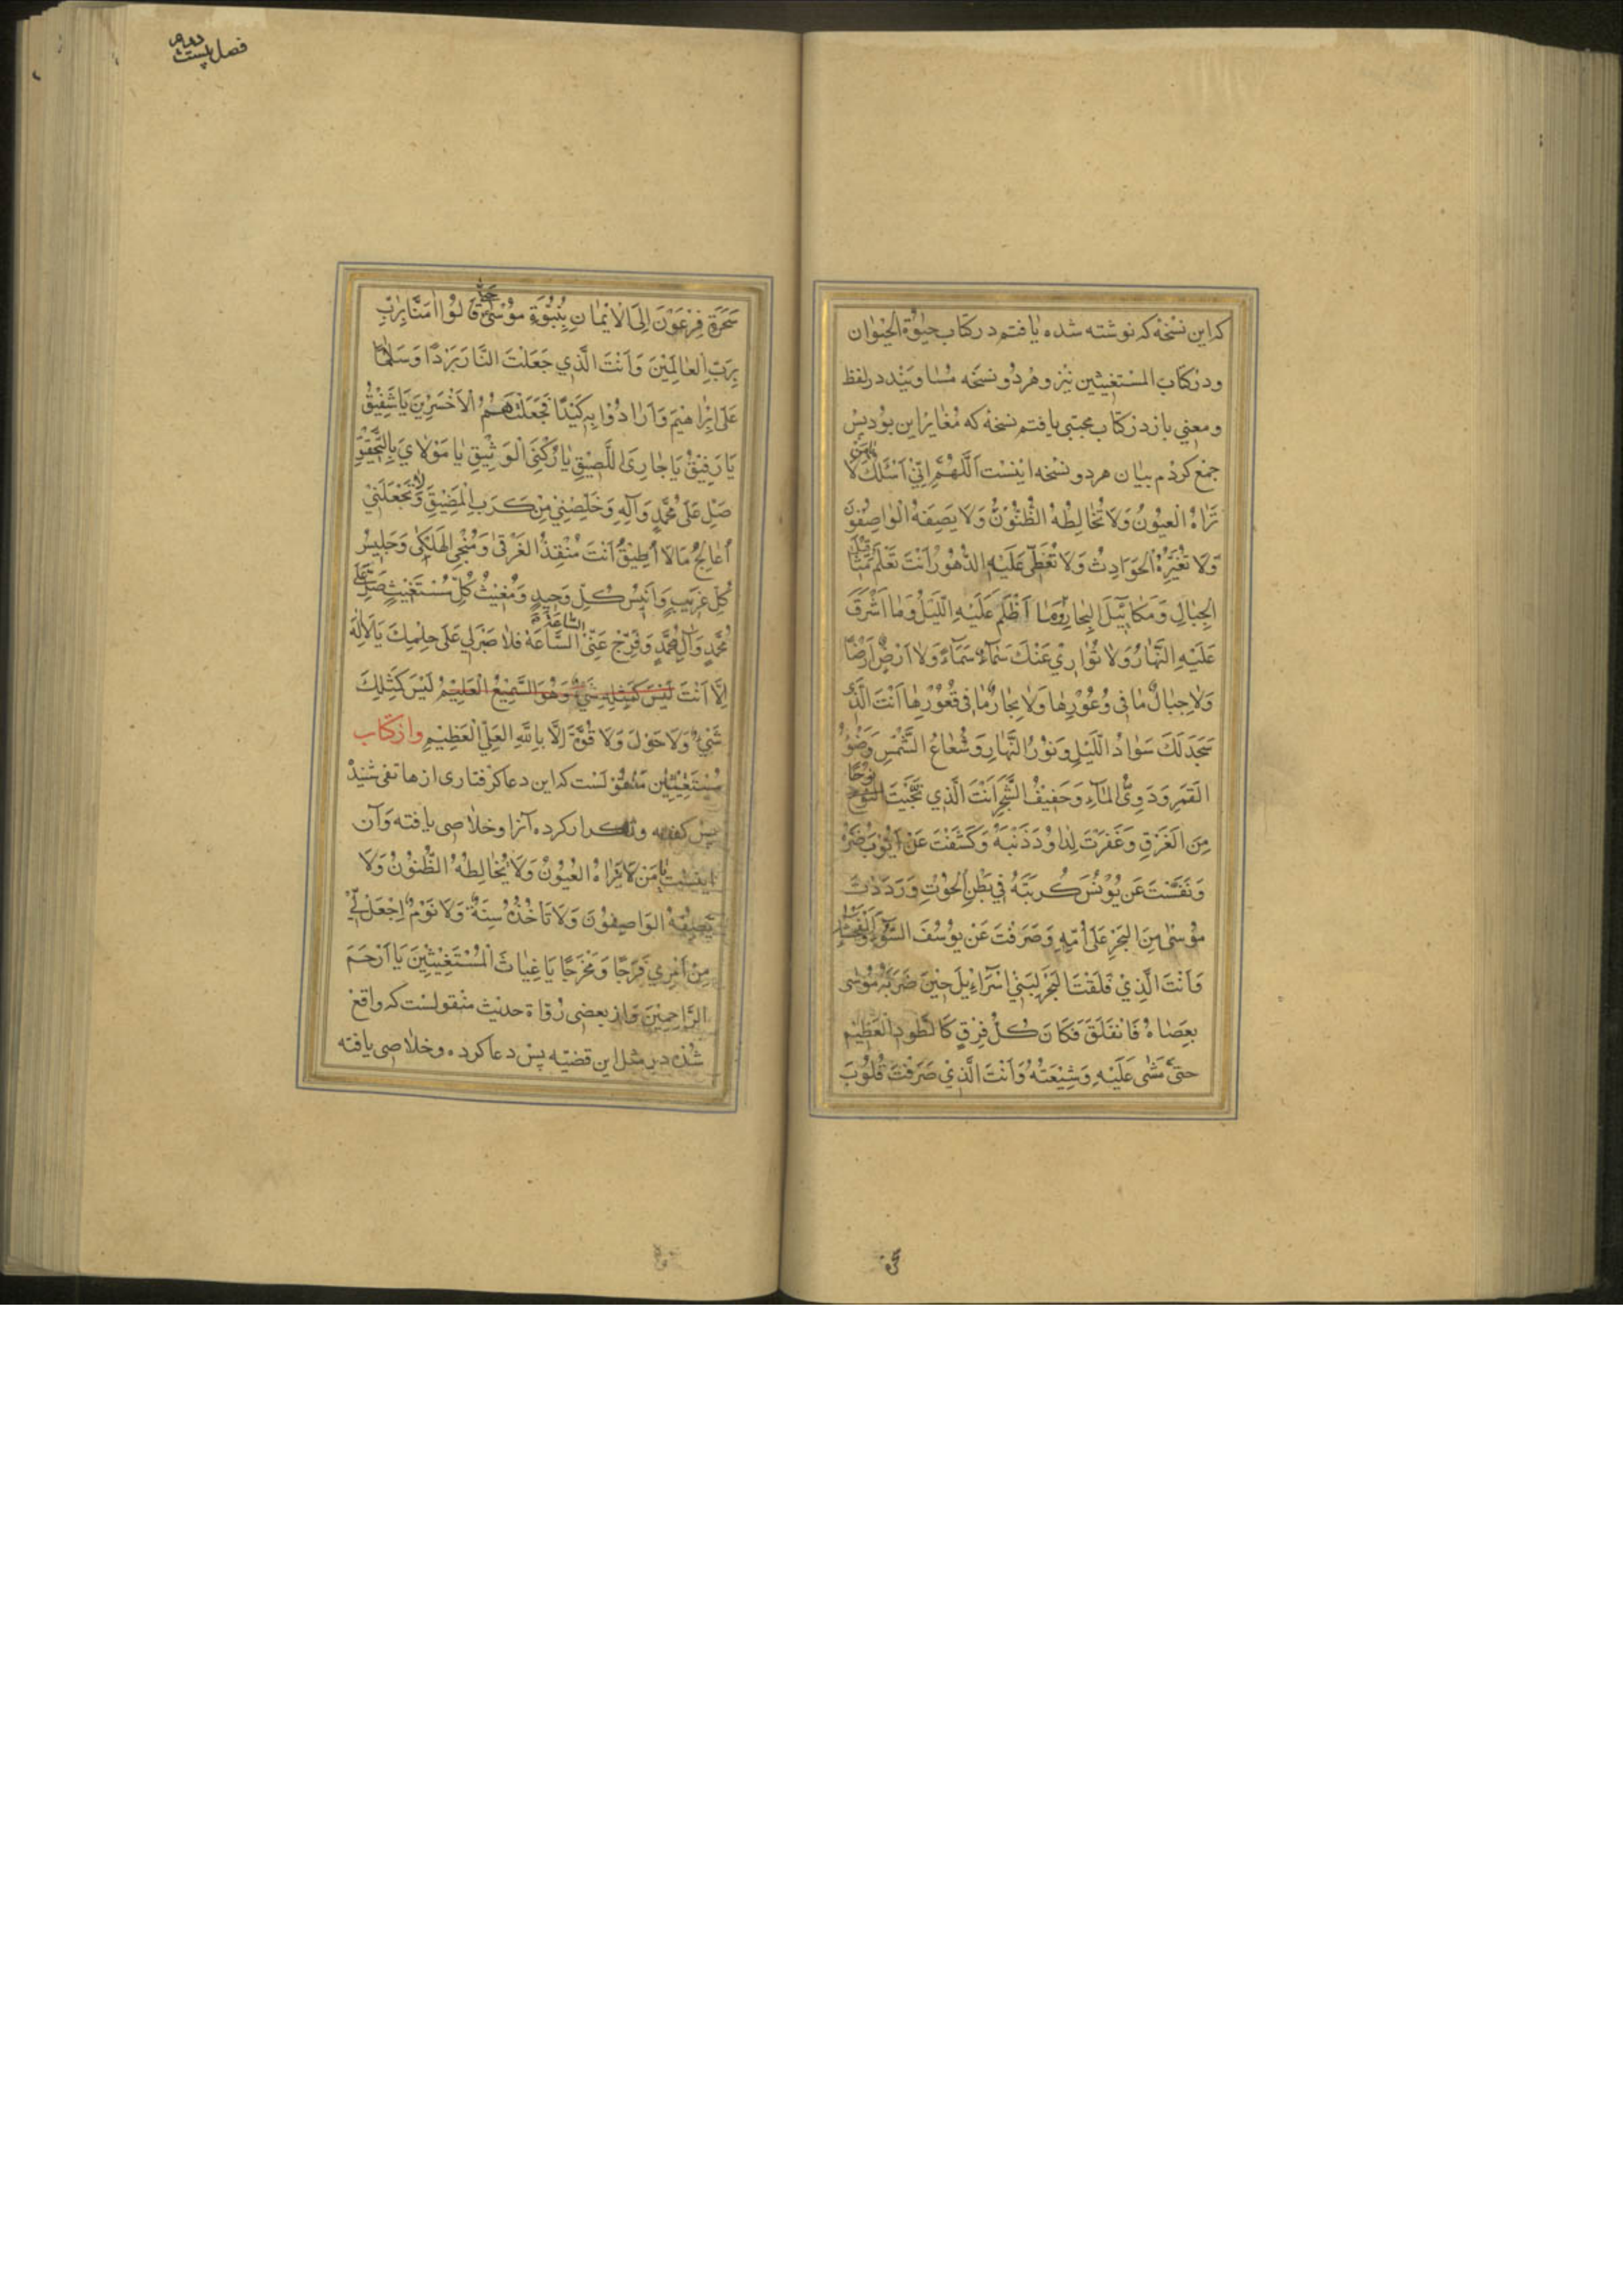 که این نسْخهٔ که نوشته شده یافتم در کتاب حیٰوة الحیَوان
ودر کتاب المسْتغیثین نیز و هرْدو نسخَه مُسٰاویَند در لفظ
و معنی باز در کتاب مجتبی یافتم نسْخهٔ که مُغایر این بود پسْ
جمْع کردم بیٰان هر دو نسْخه اینسْت اَللّهُمَّ اِنّیْ اَسْئَلُكَ یا مَنْ لا
تَرٰاهُ الْعیُونُ وَلا تُخٰالِطُهُ الظُّنُونُ وَلا یَصِفُهُ الْوٰاصِفُونَ
وَلا تُغَیِّرُهُ الْحَوٰادِثُ وَلا تُغَطّیٰ عَلَیْهِ الدُّهُورُ اَنْتَ تَعْلَمُ مَثٰاقیلَ
الْجِبٰالِ وَمَکٰاییٖلَ الْبِحٰارِ وَمٰا اَظْلَمَ عَلَیْهِ اللَّیْلُ وَمٰا اَشْرَقَ
عَلَیْهِ النَّهٰارُ وَلا تُوٰارِیْ عَنْكَ سَمٰآءٌ سَمٰآءً وَلا اَرْضٌ اَرْضًا
وَلا جِبٰالٌ مٰا فِی وُعُوْرِهٰا وَلا بِحٰارٌ مٰا فی قُعُوْرِهٰا اَنْتَ الَّذی
سَجَدَ لَكَ سَوٰادُ اللَّیْلِ وَنُوْرُ النَّهٰارِ وَشُعٰاعُ الشَّمْسِ وَضَوْءُ
الْقَمَرِ وَدَوِیُّ الْمٰآءِ وَحَفیٖفُ الشَّجَرِ اَنْتَ الَّذی نَجَّیْتَ نُوْحًا
مِنَ الْغَرَقِ وَغَفَرْتَ لِدٰاوُدَ ذَنْبَهُ وَکَشَفْتَ عَنْ اَیُّوْبَ ضُرَّهُ
وَنَفَّسْتَ عَنْ یُوْنُسَ کُرْبَتَهُ فیٖ بَطْنِ الْحُوْتِ وَرَدَدْتَ
مُوْسٰی مِنَ الْبَحْرِ عَلیٰ اُمِّهِ وَصَرَفْتَ عَنْ یُوْسُفَ السُّوْٓءَ وَالْفَحْشٰآءَ
وَاَنْتَ الَّذِیْ فَلَقْتَ الْبَحْرَ لِبَنیْ اِسْرٰآءیْلَ حِیْنَ ضَرَبَهُ مُوْسٰی
بِعَصٰاهُ فَانْفَلَقَ فَکٰانَ کُلُّ فِرْقٍ کَالطَّوْدِ الْعَظِیْمِ
حَتّیٰ مَشیٰ عَلَیْهِ وَشِیْعَتُهُ وَاَنْتَ الَّذِیْ صَرَفْتَ قُلُوْبَ
فصل بیست
سَحَرَةِ فِرْعَوْنَ اِلَی الْاِیْمٰانِ بِنُبُوَّةِ مُوْسٰی حَتّیٰ قٰالُوْا اٰمَنّٰا بِرَبِّ
بِرَبِّ الْعٰالَمِیْنَ وَاَنْتَ الَّذِی جَعَلْتَ النّٰارَ بَرْدًا وَسَلٰامًا
عَلیٰ اِبْرٰاهیْمَ وَاَرٰادُوْا بِهِ کَیْدًا فَجَعَلْتَهُمُ الْاَخْسَرِیْنَ یٰا شَفِیْقُ
یٰا رَفِیْقُ یٰا جٰارِیَ اللَّصِیْقَ یٰا رُکْنِیَ الْوَثِیْقَ یٰا مَوْلٰایَ بِالتَّحْقِیْقِ
صَلِّ عَلیٰ مُحَمَّدٍ وَاٰلِهِ وَخَلِّصْنِیْ مِنْ کَرْبِ الْمَضِیْقِ وَلٰا تَجْعَلْنیْ
اُعٰالِجُ مٰا لٰا اُطِیْقُ اَنْتَ مُنْقِذُ الْغَرْقیٰ وَمُنْجِی الْهَلْکیٰ وَجَلِیْسُ
کُلِّ غَرِیْبٍ وَاَنِیْسُ کُلِّ وَحِیْدٍ وَمُغِیْثُ کُلِّ مُسْتَغِیْثٍ صَلِّ عَلیٰ
مُحَمَّدٍ وَاٰلِ مُحَمَّدٍ وَفَرِّجْ عَنِّیْ السّٰاعَةَ السّٰاعَةَ فَلٰا صَبْرَ لِی عَلیٰ حِلْمِكَ یٰا لٰا اِلٰهَ
اِلّٰا اَنْتَ لَیْسَ کَمِثْلِهِ شَیْءٌ وَهُوَ السَّمِیْعُ الْعَلِیْمُ لَیْسَ کَمِثْلِكَ
شَیْءٌ وَلٰا حَوْلَ وَلٰا قُوَّةَ اِلّٰا بِاللّٰهِ الْعَلِیِّ الْعَظِیْمِ واز کتاب
مسْتغیثیْن منقوْلسْت که این دعا کرفتاری از هاتفی شنیدْ
پسْ کفته وتکرار کرده آنرا وخلاصی یافته وآن
اینست یٰا مَنْ لٰا تَرٰاهُ الْعُیُوْنُ وَلٰا یُخٰالِطُهُ الظُّنُوْنُ وَلٰا
یَصِفُهُ الْوٰاصِفُوْنَ وَلٰا تَاْخُذُهُ سِنَةٌ وَلٰا نَوْمٌ اِجْعَلْ لِّیْ
مِنْ اَمْرِیْ فَرَجًا وَمَخْرَجًا یٰا غِیٰاثَ الْمُسْتَغِیْثِیْنَ یٰا اَرْحَمَ
الرّٰاحِمِیْنَ واز بعضی رُوٰاة حدیْث منْقولسْت که واقعْ
شُدْه در مثل این قضیّه پسْ دعا کرده وخلاصی یافته